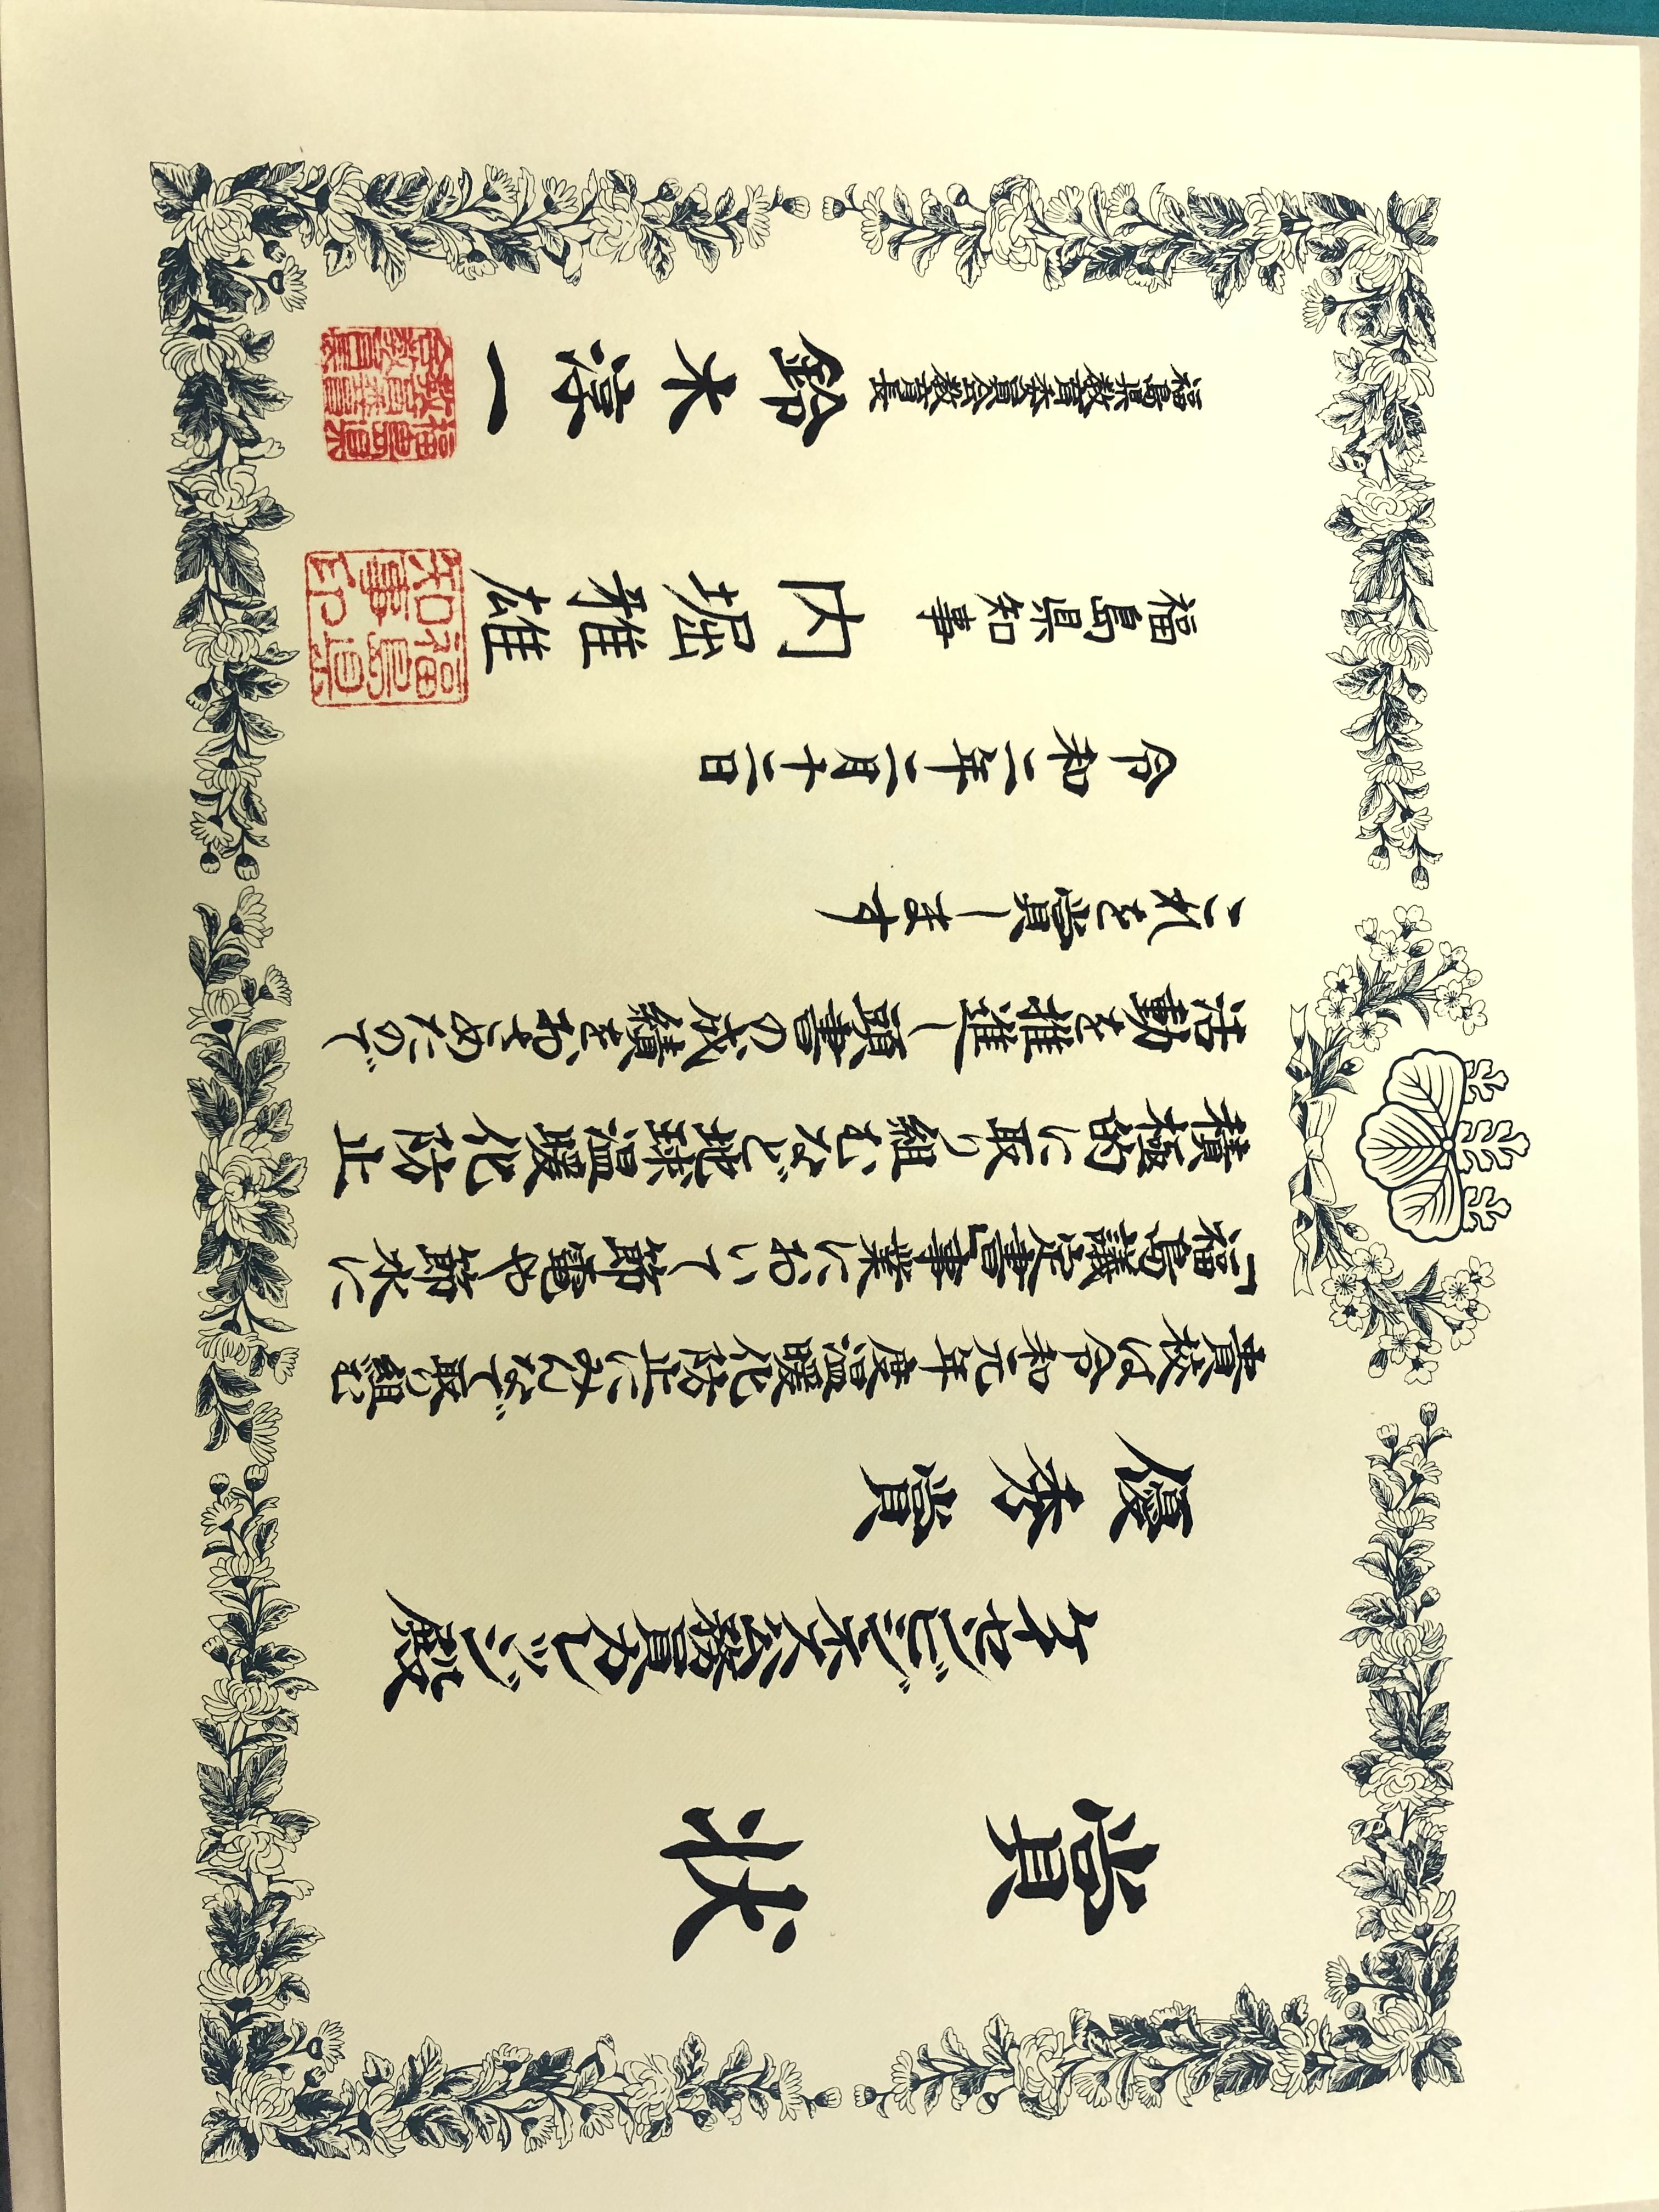 賞状
ケイセンビジネス公務員カレッジ殿
優秀賞
貴校は令和元年度温暖化防止にみんなで取り組む
「福島議定書」事業において節電や節水に
積極的に取り組むなど地球温暖化防止
活動を推進し頭書の成績をおさめたので
これを賞します
令和二年二月十二日
福島県知事 内堀雅雄
福島県知事印
福島県教育委員会教育長 鈴木淳一